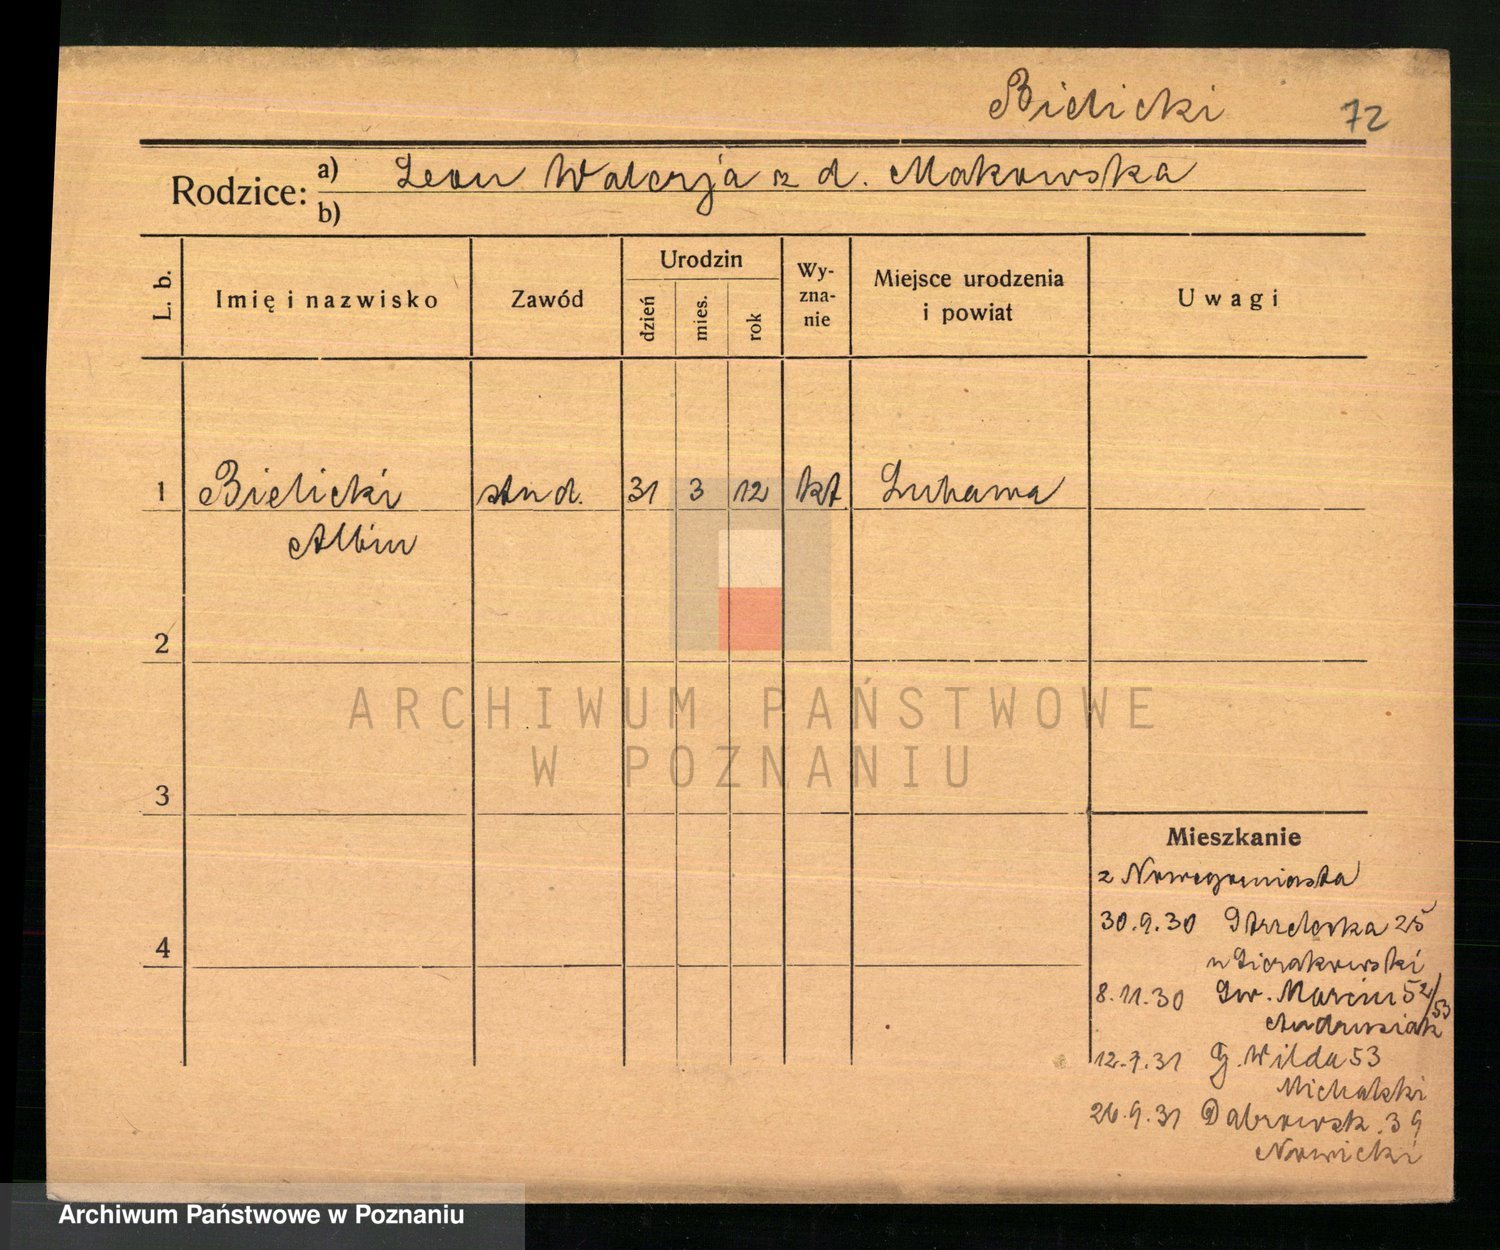 Bielicki 72
Rodzice: a) Leon Walerja z d. Makowska
b)
L. b.
Imię i nazwisko
Zawód
Urodzin
dzień
mies.
rok
Wy-
zna-
nie
Miejsce urodzenia
i powiat
Uwagi
1 Bielicki stud. 31 3 12 kt
Albin
2
3
4
ARCHIWUM PAŃSTWOWE
W POZNANIU
Mieszkanie
z Nowegomiasta
30.9.30 Strzelecka 25
u Sierakowski
8.11.30 Św. Marcin 52/53
Andrusiak
12.7.31 G. Wilda 53
Michalski
26.9.31 Dąbrowsk. 39
Nowicki
Archiwum Państwowe w Poznaniu